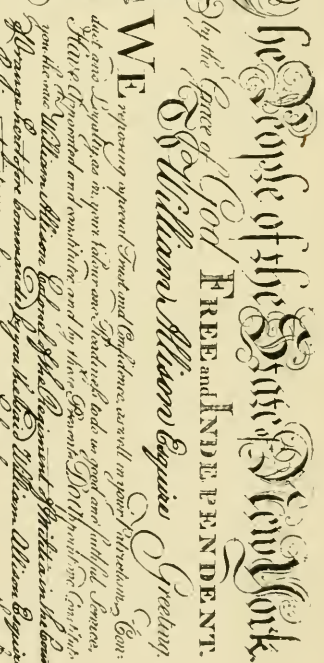 The People of the State of New York,
by the Grace of God FREE and INDEPENDENT.
To William Allison Esquire Greeting,
WE reposing especial Trust and Confidence, as well in your Patriotism, Con:
duct and Loyalty, as in your Valour and Readiness to do us good and faithful Service,
Have appointed and constituted, and by these Presents DO appoint and Constitute
you the said William Allison Colonel of the Regiment of Militia in the County
Orange heretofore Commanded by you the said William Allison Esquire